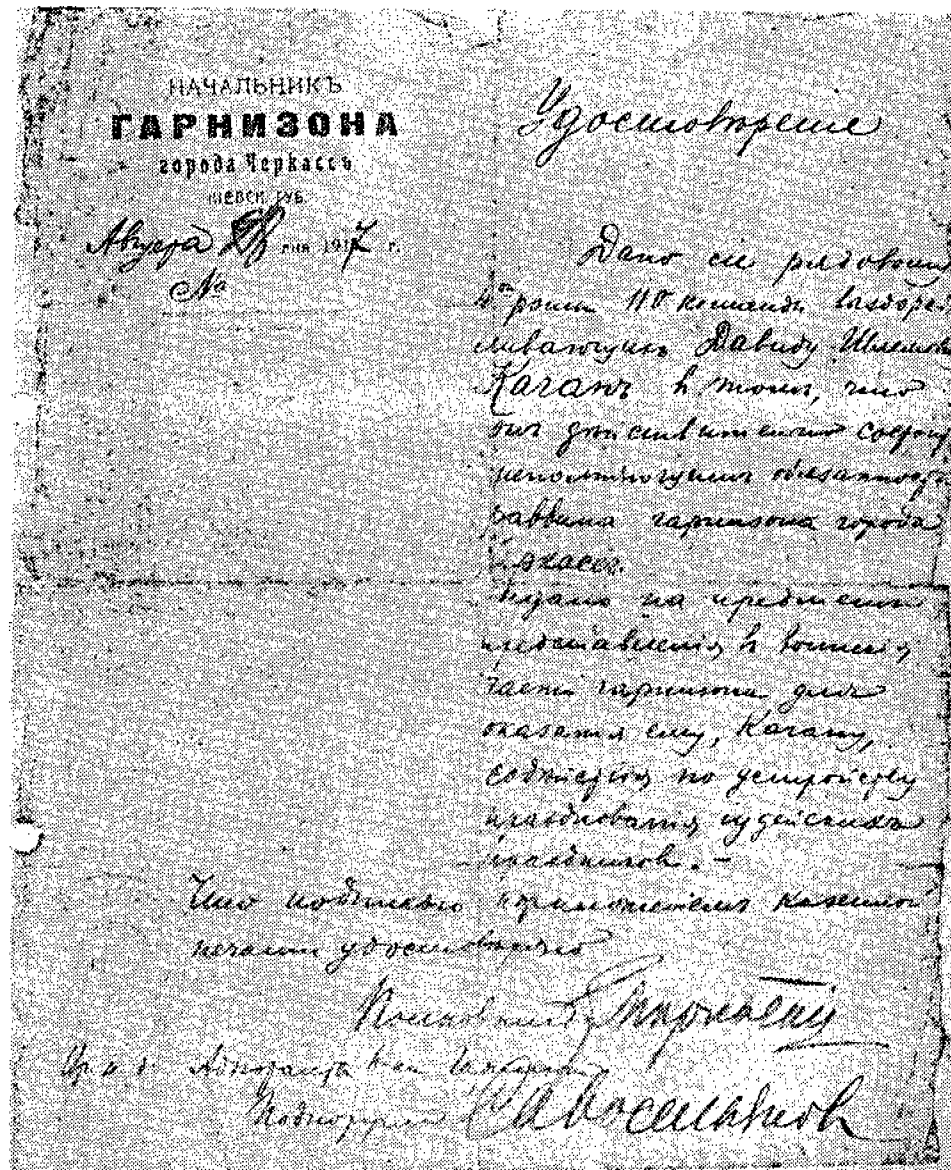 НАЧАЛЬНИКЪ
ГАРНИЗОНА
города Черкассъ
КІЕВСК. ГУБ.
Августа дня 1917 г.
№
Удостовѣреніе
Дано сіе рядовому
4ой роты команды выздоро-
вливающихъ Давиду
Каганъ въ томъ, что
онъ дѣйствительно состоитъ
исполняющимъ обязанности
раввина гарнизона города
Выдано на предметъ
представленія въ воинскія
части гарнизона для
оказанія ему, Кагану,
содѣйствія по устройству
празднованія іудейскихъ
праздниковъ. —
Что подписью и приложеніемъ казенной
печати удостовѣряю
Полковникъ
Вр. и. д. Адъютанта Нач. Гарнизона
Подпоручикъ Савостьяновъ